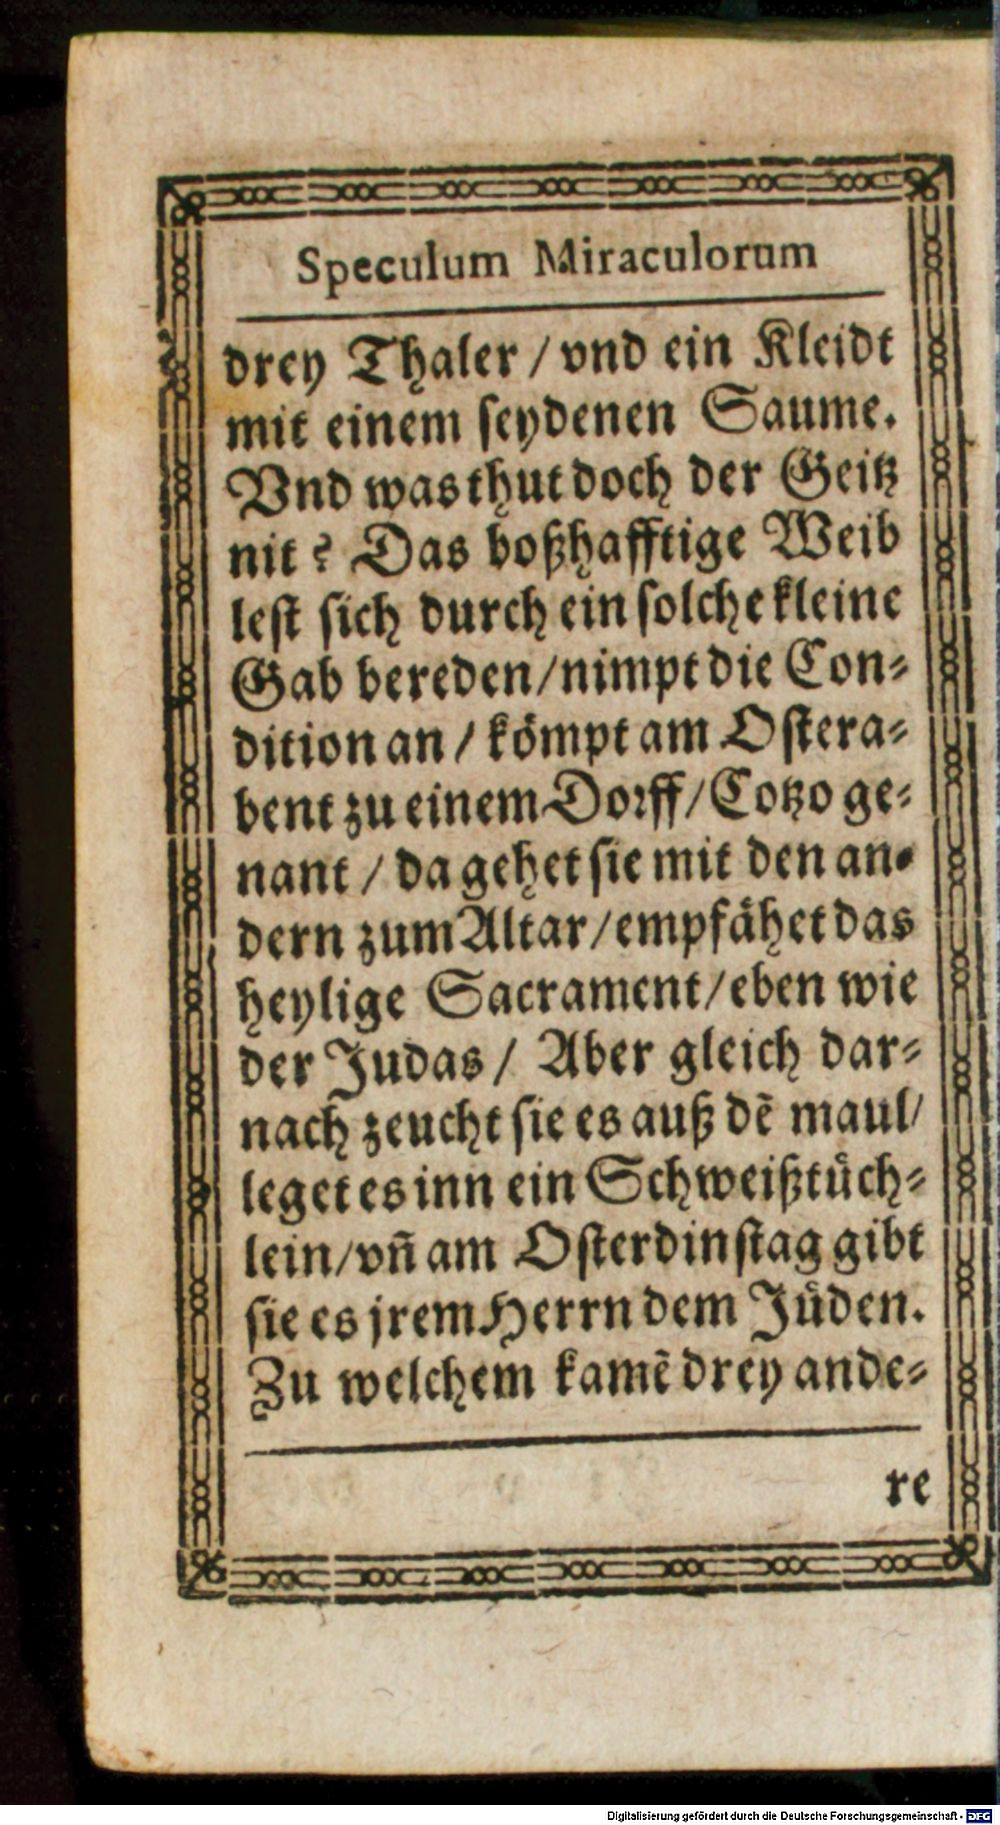 Speculum Miraculorum
drey Thaler / vnd ein Kleidt
mit einem ſeydenen Saume.
Vnd was thut doch der Geitz
nit? Das boßhafftige Weib
leſt ſich durch ein ſolche kleine
Gab bereden / nimpt die Con-
dition an / kömpt am Oſtera-
bent zu einem Dorff / Cotzo ge-
nant / da gehet ſie mit den an-
dern zum Altar / empfähet das
heylige Sacrament / eben wie
der Judas / Aber gleich dar-
nach zeucht ſie es auß dē maul /
leget es inn ein Schweißtüch-
lein / vñ am Oſterdinſtag gibt
ſie es jrem Herrn dem Jüden.
Zu welchem kamē drey ande-
re
Digitalisierung gefördert durch die Deutsche Forschungsgemeinschaft - DFG